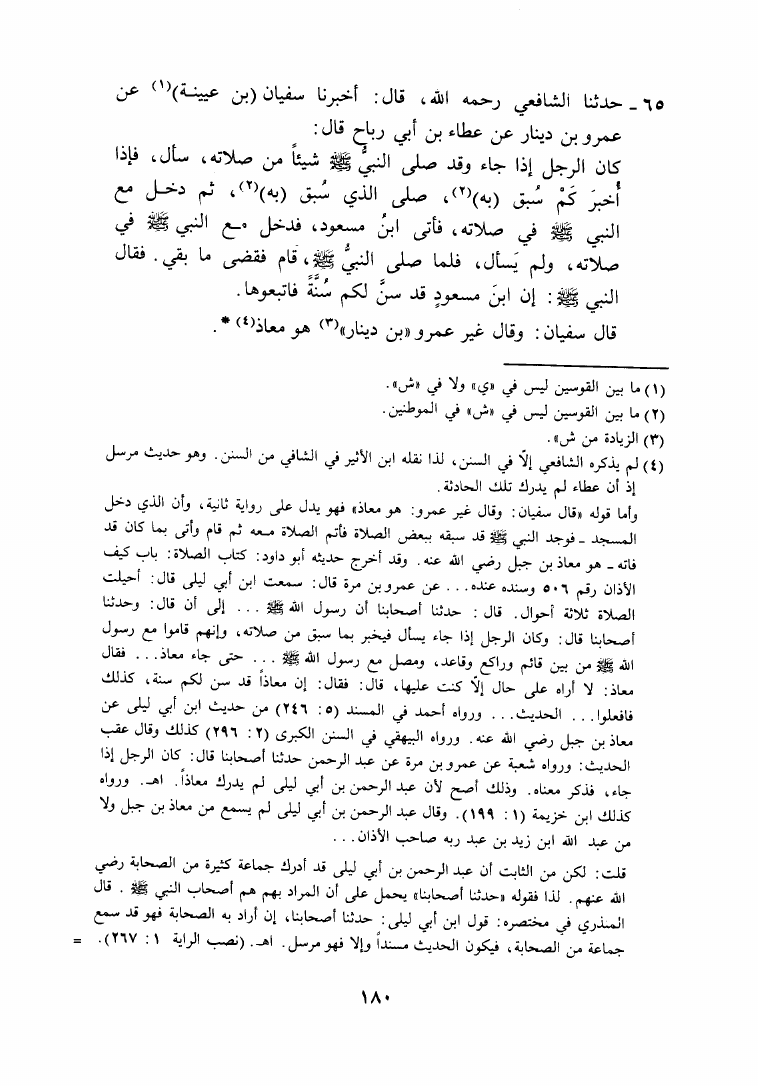 ٦٥ ـ حدثنا الشافعي رحمه الله، قال: أخبرنا سفيان (بن عيينة)(١) عن
عمرو بن دينار عن عطاء بن أبي رباح قال:
كان الرجل إذا جاء وقد صلى النبيُّ ﷺ شيئاً من صلاته، سأل، فإذا
أُخبرَ كَمْ سُبق (به)(٢)، صلى الذي سُبق (به)(٢)، ثم دخـل مع
النبي ﷺ في صلاته، فأتى ابنُ مسعود، فدخل مـع النبي ﷺ في
صلاته، ولم يَسأل، فلما صلى النبيُّ ﷺ، قام فقضى ما بقي. فقال
النبي ﷺ: إن ابنَ مسعودٍ قد سنَّ لكم سُنَّةً فاتبعوها.
قال سفيان: وقال غير عمرو «بن دينار»(٣) هو معاذ(٤) *.
(١) ما بين القوسين ليس في «ي» ولا في «ش».
(٢) ما بين القوسين ليس في «ش» في الموطنين.
(٣) الزيادة من ش».
(٤) لم يذكره الشافعي إلاّ في السنن، لذا نقله ابن الأثير في الشافي من السنن. وهو حديث مرسل
إذ أن عطاء لم يدرك تلك الحادثة.
وأما قوله «قال سفيان: وقال غير عمرو: هو معاذ» فهو يدل على رواية ثانية، وأن الذي دخل
المسجد ـ فوجد النبي ﷺ قد سبقه ببعض الصلاة فأتم الصلاة مـعه ثم قام وأتى بما كان قد
فاته ـ هو معاذ بن جبل رضي الله عنه. وقد أخرج حديثه أبو داود: كتاب الصلاة: باب كيف
الأذان رقم ٥٠٦ وسنده عنده... عن عمرو بن مرة قال: سمعت ابن أبي ليلى قال: أحيلت
الصلاة ثلاثة أحوال. قال: حدثنا أصحابنا أن رسول الله ﷺ ... إلى أن قال: وحدثنا
أصحابنا قال: وكان الرجل إذا جاء يسأل فيخبر بما سبق من صلاته، وإنهم قاموا مع رسول
الله ﷺ من بين قائم وراكع وقاعد، ومصل مع رسول الله ﷺ ... حتى جاء معاذ... فقال
معاذ: لا أراه على حال إلاّ كنت عليها، قال: فقال: إن معاذاً قد سن لكم سنة، كذلك
فافعلوا... الحديث... ورواه أحمد في المسند (٥: ٢٤٦) من حديث ابن أبي ليلى عن
معاذ بن جبل رضي الله عنه. ورواه البيهقي في السنن الكبرى (٢: ٢٩٦) كذلك وقال عقب
الحديث: ورواه شعبة عن عمرو بن مرة عن عبد الرحمن حدثنا أصحابنا قال: كان الرجل إذا
جاء، فذكر معناه. وذلك أصح لأن عبد الرحمن بن أبي ليلى لم يدرك معاذاً. اهـ. ورواه
كذلك ابن خزيمة (١: ١٩٩). وقال عبد الرحمن بن أبي ليلى لم يسمع من معاذ بن جبل ولا
من عبد الله ابن زيد بن عبد ربه صاحب الأذان...
قلت: لكن من الثابت أن عبد الرحمن بن أبي ليلى قد أدرك جماعة كثيرة من الصحابة رضي
الله عنهم. لذا فقوله «حدثنا أصحابنا» يحمل على أن المراد بهم هم أصحاب النبي ﷺ. قال
المنذري في مختصره: قول ابن أبي ليلى: حدثنا أصحابنا، إن أراد به الصحابة فهو قد سمع
جماعة من الصحابة، فيكون الحديث مسنداً وإلا فهو مرسل. اهـ. (نصب الراية ١: ٢٦٧). =
١٨٠